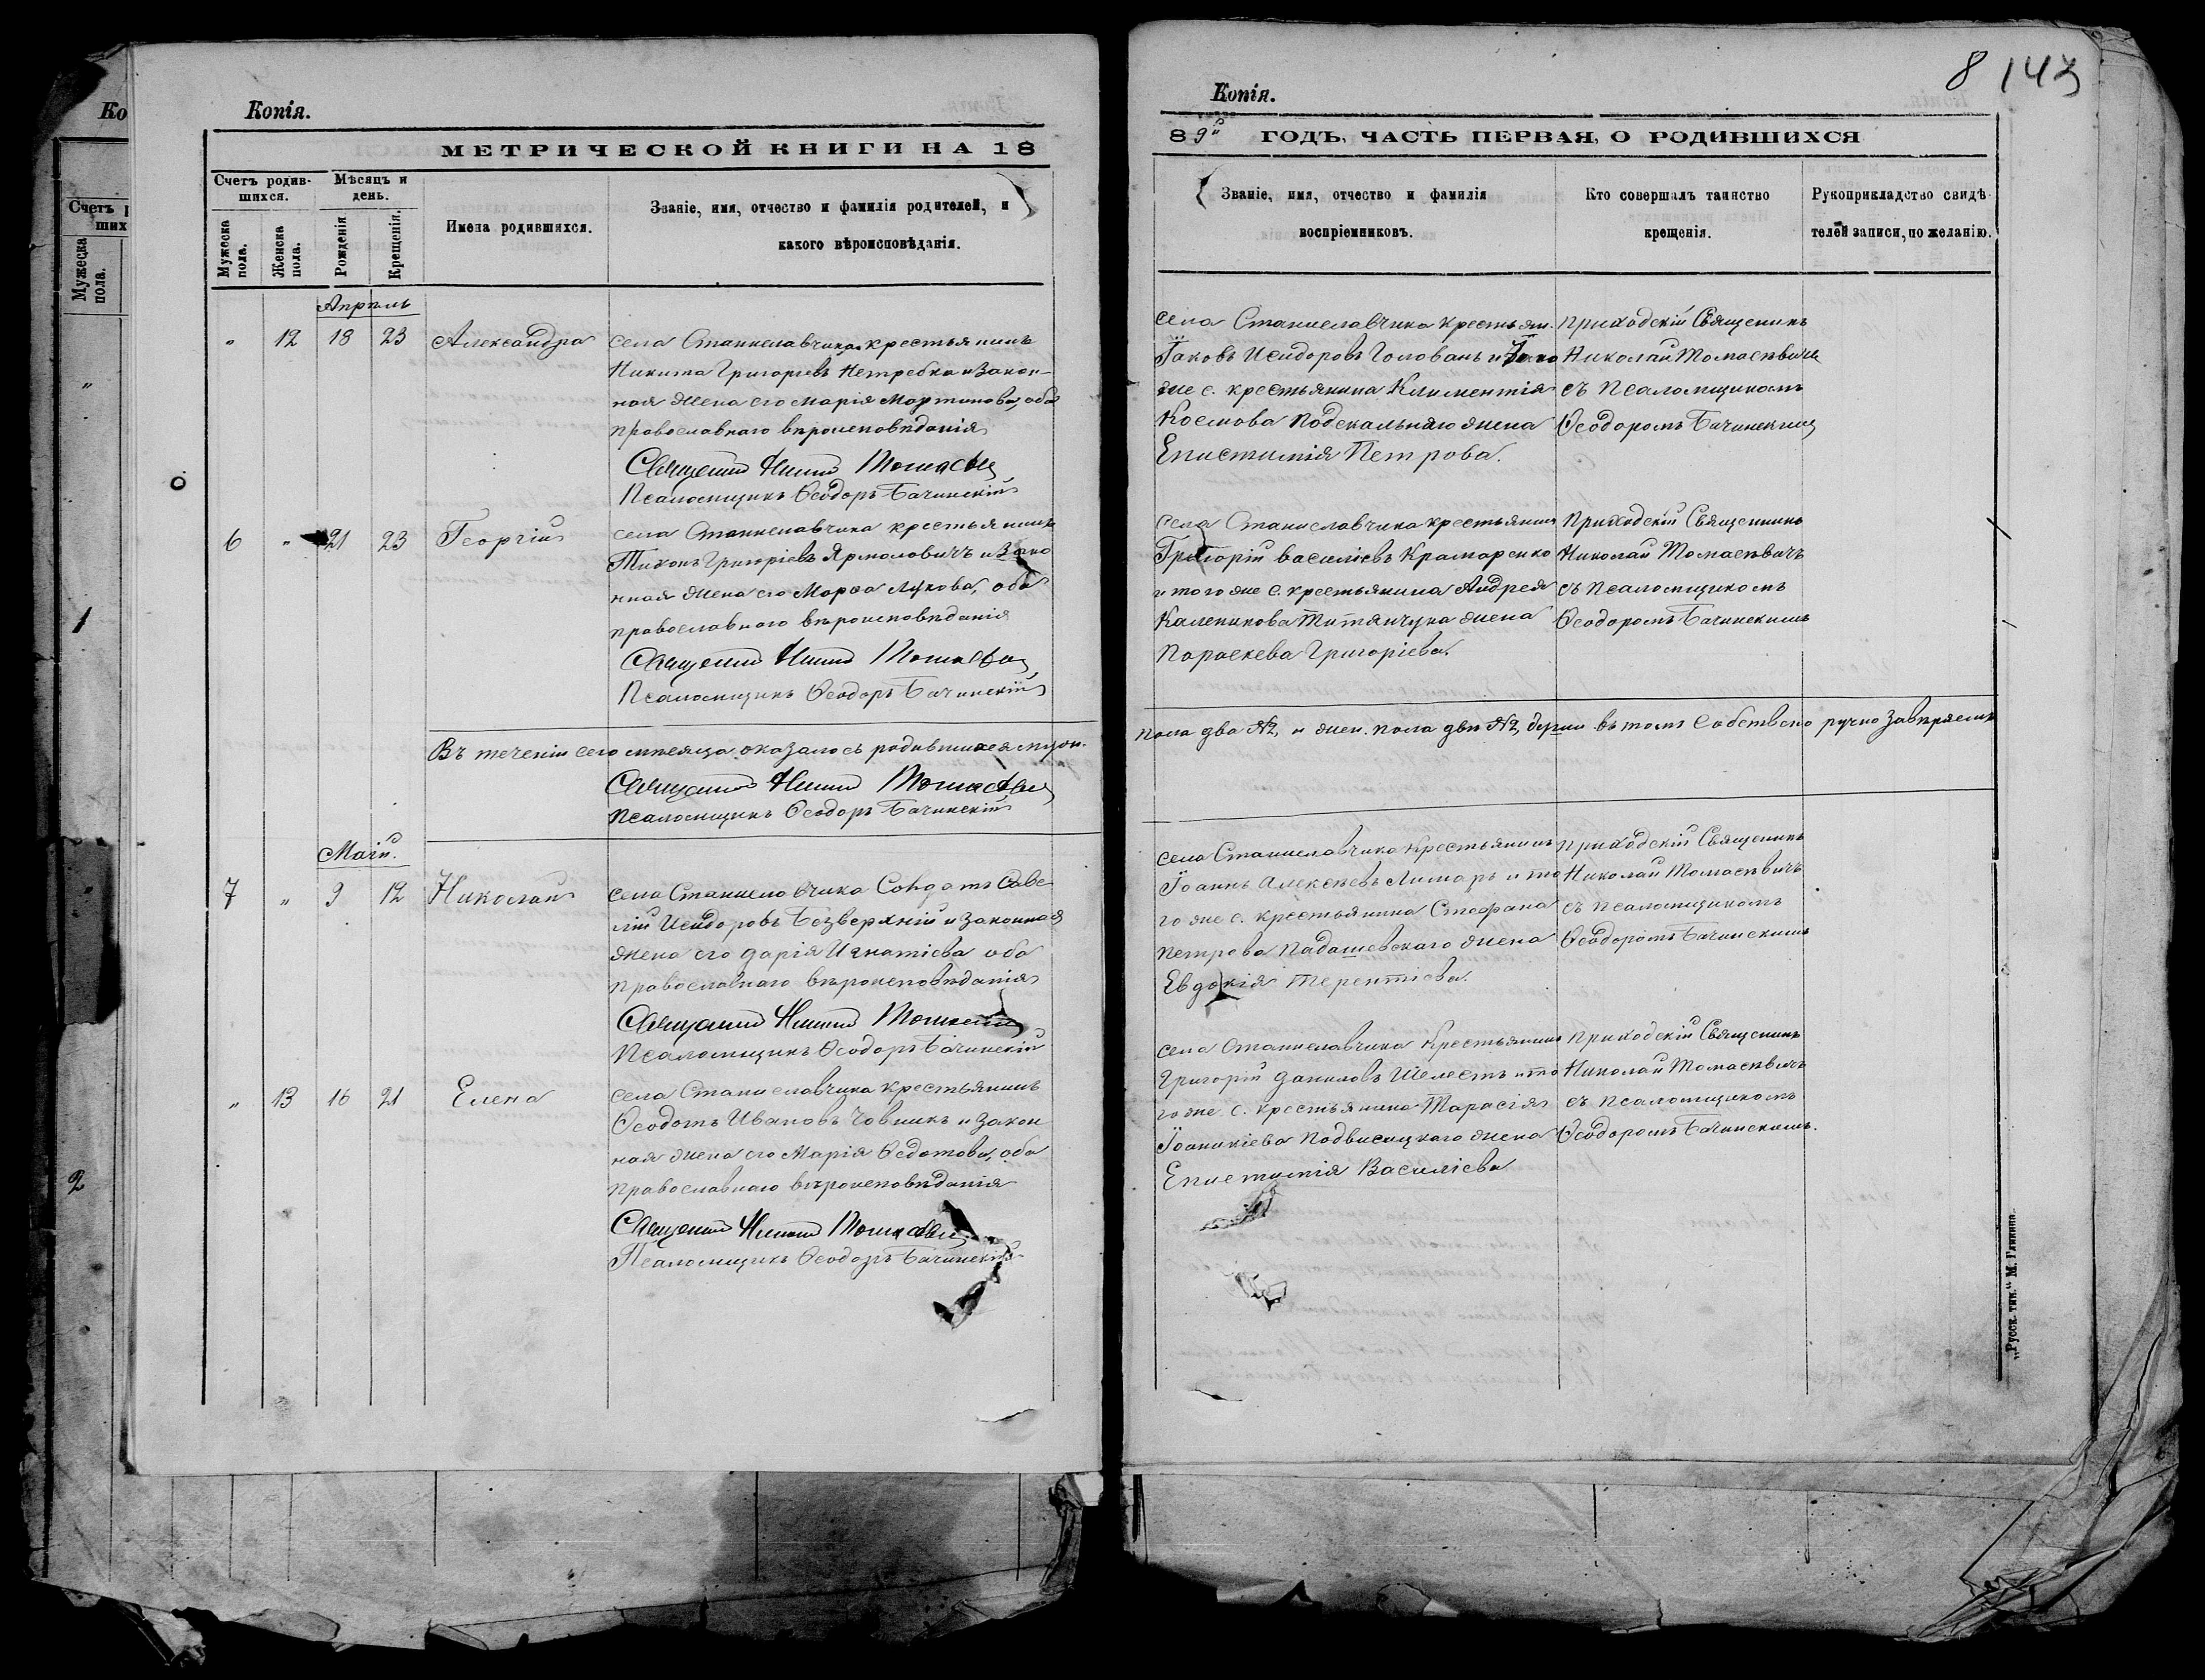 Копія.
МЕТРИЧЕСКОЙ КНИГИ НА 18
Счетъ родив-
шихся.
Мѣсяцъ и
день.
Мужеска
пола.
Женска
пола.
Рожденія
Крещенія.
Имена родившихся.
Званіе, имя, отчество и фамилія родителей, и
какого вѣроисповѣданія.
Апрѣль
„ 12 18 23 Александра
села Станиславчика крестьянинъ
Никита Григоріевъ Нетребка и закон-
ная жена его Марія Мартинова, оба
православнаго вѣроисповѣданія
Священникъ Николай Томасевичъ
Псаломщикъ Ѳеодоръ Бачинскій
6 „ 21 23 Георгій
села Станиславчика крестьянинъ
Тихонъ Григоріевъ Ярмоловичъ и зако
нная жена его Марѳа Лукова, оба
православнаго вѣроисповѣданія
Священникъ Николай Томасевичъ
Псаломщикъ Ѳеодоръ Бачинскій
Въ теченіи сего мѣсяца оказалось родившихся муж.
Священникъ Николай Томасевичъ
Псаломщикъ Ѳеодоръ Бачинскій
Маій.
7 „ 9 12 Николай
села Станиславчика Солдатъ Саве
лій Исидоровъ Безверхній и законная
жена его Дарія Игнатіева оба
православнаго вѣроисповѣданія
Священникъ Николай Томасевичъ
Псаломщикъ Ѳеодоръ Бачинскій
„ 13 16 21 Елена
села Станиславчика крестьянинъ
Ѳеодотъ Ивановъ Човникъ и закон
ная жена его Марія Ѳедотова, оба
православнаго вѣроисповѣданія
Священникъ Николай Томасевичъ
Псаломщикъ Ѳеодоръ Бачинскій
8 143
Копія.
89й ГОДЪ, ЧАСТЬ ПЕРВАЯ, О РОДИВШИХСЯ
Званіе, имя, отчество и фамилія
воспріемниковъ.
Кто совершалъ таинство
крещенія.
Рукоприкладство свидѣ
телей записи, по желанію.
села Станиславчика крестьян.
Іаковъ Исидоровъ Голованъ и того
же с. крестьянина Климентія
Космова Подскальнаго жена
Епистимія Петрова.
Приходскій Священникъ
Николай Томасевичъ
съ Псаломщикомъ
Ѳеодоромъ Бачинскимъ
села Станиславчика крестьянинъ
Григорій Василіевъ Крамаренко
и того же с. крестьянина Андрея
Каленикова Титянчука жена
Параскева Григоріева.
Приходскій Священникъ
Николай Томасевичъ
съ Псаломщикомъ
Ѳеодоромъ Бачинскимъ
пола два №2, и жен. пола двѣ №2, души въ томъ Собственноручно завѣряемъ
села Станиславчика крестьянинъ
Іоаннъ Алексѣевъ Лимаръ и то
го же с. крестьянина Стефана
Петрова Падашевскаго жена
Евдокія Терентіева.
Приходскій Священникъ
Николай Томасевичъ
съ Псаломщикомъ
Ѳеодоромъ Бачинскимъ
села Станиславчика крестьянинъ
Григорій Даниловъ Шелестъ и то
го же с. крестьянина Тарасія
Іоаникіева Подвисоцкаго жена
Епистимія Василіева
Приходскій Священникъ
Николай Томасевичъ
съ Псаломщикомъ
Ѳеодоромъ Бачинскимъ.
„Русск. тип.“ М. Гликина.
Ко
Счетъ
ших
Мужеска
пола.
„
1
2